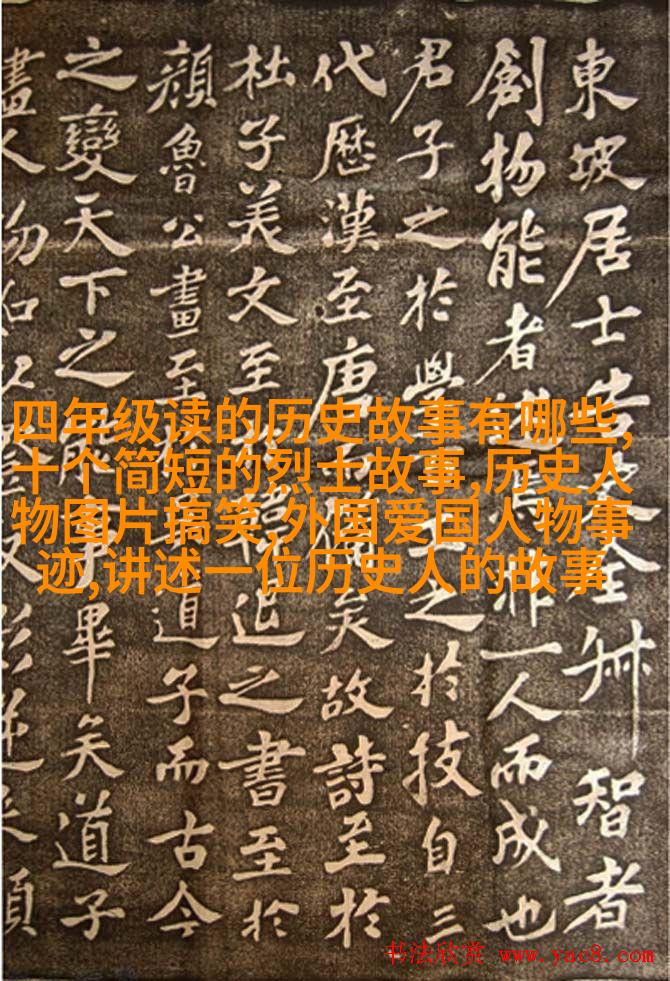 東坡居士 智者
創物能者述焉非一人而成也
君子之於學 士之於技自三
代歷漢至唐 備矣故詩至於
杜子美文至 退之書至於
顏魯公畫至 道子而古今
之變天下之能事畢矣道子
畫人物 影逆來順
四年级读的历史故事有哪些,
十个简短的烈士故事,历史人
物图片搞笑,外国爱国人物事
迹,讲述一位历史人的故事
书法欣赏 www.yac8.com